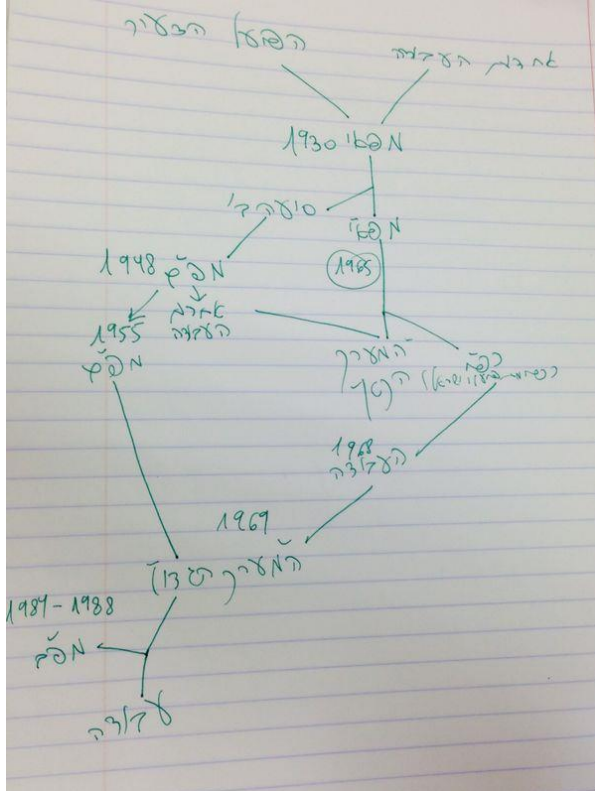 הפועל הצעיר
אחדות העבודה
מפא"י 1930
סיעה ב'
מפא"י
1948 מפ"ם
1965
אחדות
העבודה
1955
מפ"ם
המערך
הקטן
רפ"י
רשימת פועלי ישראל)
1968
העבודה
1969
המערך הגדול
1984-1988
מפ"ם
עבודה